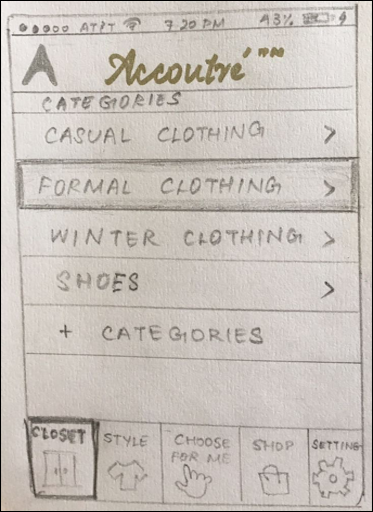 AT&T 7:20 PM 43%
A Accoutré™
CATEGORIES
CASUAL CLOTHING >
FORMAL CLOTHING >
WINTER CLOTHING >
SHOES >
+ CATEGORIES
CLOSET STYLE CHOOSE FOR ME SHOP SETTING